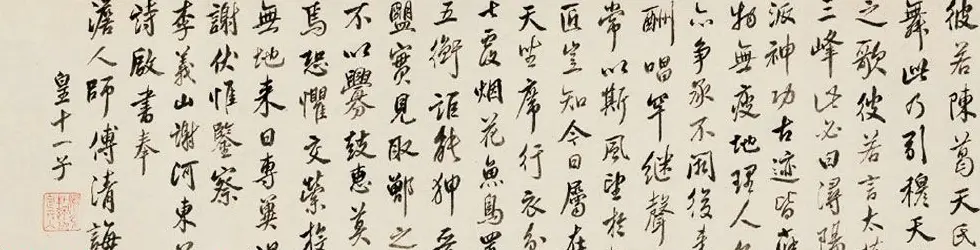 彼若陳葛天氏
舞此乃引穆天
之歌彼若言太
三峰此必曰潯陽
派神功古迹皆
物無疲地理人
亦爭承不闕後
酬唱罕繼聲
常以斯風望於
匠豈知今日屬在
天坐席行衣分
七覆烟花魚鳥置
五衡詎能狎
盟實見取鄫之
不以釁鼓惠莫
焉恐懼交縈投
無地来日專冀
謝伏惟鑒察
李義山謝河東
詩啟書奉
澹人師傅清誨
皇十一子